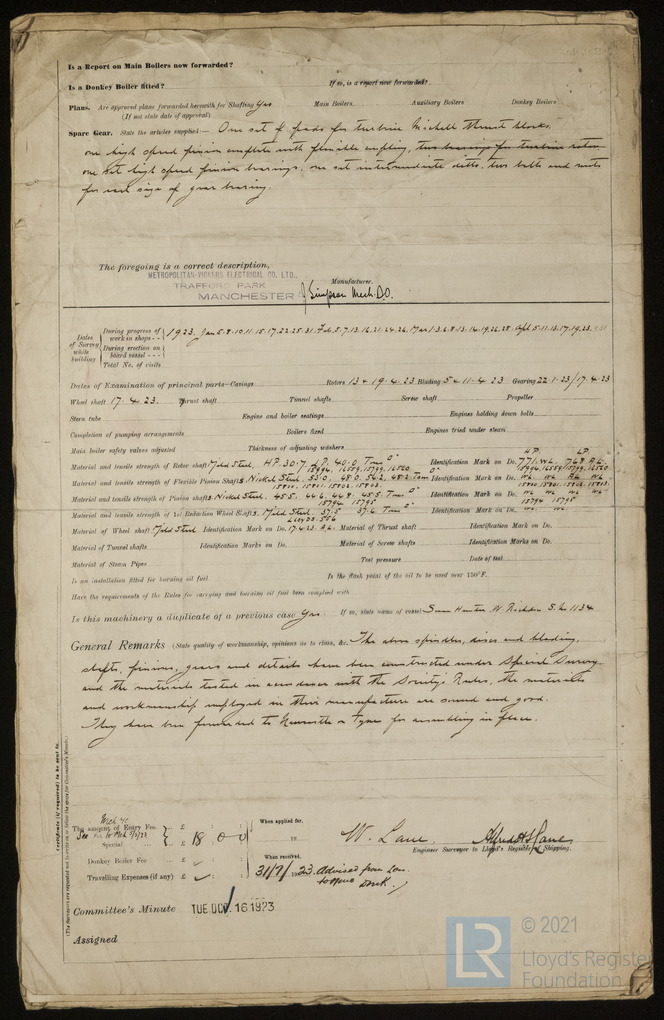 Is a Report on Main Boilers now forwarded?
Is a Donkey Boiler fitted? If so, is a report now forwarded?
Plans. Are approved plans forwarded herewith for Shafting Yes Main Boilers Auxiliary Boilers Donkey Boilers
(If not state date of approval)
Spare Gear. State the articles supplied:— One set of pads for turbine Michell thrust blocks,
one high speed pinion complete with flexible coupling, two bearings for turbine rotors
one set high speed pinion bearings, one set intermediate ditto, two bolts and nuts
for each size of gear bearing.
The foregoing is a correct description,
METROPOLITAN-VICKERS ELECTRICAL CO. LTD.,
TRAFFORD PARK
MANCHESTER J Simpson Mech. D.O. Manufacturer.
Dates of Survey while building
During progress of work in shops - - 1923. Jan 5.8.10.11.15.17.22.25.31. Feb. 5.7.13.16.21.24.26. Mar 1.3.6.8.13.14.19.26.28. Apl 5.11.13.17.19.23.
During erection on board vessel - - -
Total No. of visits
Dates of Examination of principal parts—Casings Rotors 13 & 19.4.23 Blading 5 & 11.4.23 Gearing 22.1.23/17.4.23
Wheel shaft 17.4.23. Thrust shaft Tunnel shafts Screw shaft Propeller
Stern tube Engine and boiler seatings Engines holding down bolts
Completion of pumping arrangements Boilers fixed Engines tried under steam
Main boiler safety valves adjusted Thickness of adjusting washers
Material and tensile strength of Rotor shaft Mild Steel. HP. 30.7. LP. 40.0. Tons Identification Mark on Do. HP. 771.WL. LP. 768.AL.
Material and tensile strength of Flexible Pinion Shaft Nickel Steel. Identification Mark on Do.
Material and tensile strength of Pinion shafts Nickel Steel. 45.5. 44.6. 44.8. 45.5 Tons Identification Mark on Do.
Material and tensile strength of 1st Reduction Wheel Shaft Mild Steel. 37.5 37.6 Tons Identification Mark on Do.
Material of Wheel shaft Mild Steel Identification Mark on Do. Lloyds. 556 17.4.23 AL. Material of Thrust shaft Identification Mark on Do.
Material of Tunnel shafts Identification Marks on Do. Material of Screw shafts Identification Marks on Do.
Material of Steam Pipes Test pressure Date of test
Is an installation fitted for burning oil fuel Is the flash point of the oil to be used over 150°F.
Have the requirements of the Rules for carrying and burning oil fuel been complied with
Is this machinery a duplicate of a previous case Yes If so, state name of vessel Swan Hunter W. Richdson S. No 1134
General Remarks (State quality of workmanship, opinions as to class, &c. The above spindles, discs and blading,
shafts, pinions, gears and details have been constructed under Special Survey
and the materials tested in accordance with the Society's Rules, the materials
and workmanship employed in their manufacture are sound and good.
They have been forwarded to Newcastle on Tyne for assembling in place.
Certificate (if required) to be sent to
(The Surveyors are requested not to write on or below the space for Committee's Minute.)
The amount of Entry Fee £ : : When applied for,
Special £ 18 : 0 : 0
Donkey Boiler Fee £ : : When received,
Travelling Expenses (if any) £ : : 31/7/1923 Advised from Lon.
W. Lane Alfred H. S. Lane
Engineer Surveyor to Lloyd's Register of Shipping.
Committee's Minute TUE. OCT. 16 1923
Assigned
LR © 2021
Lloyd's Register
Foundation